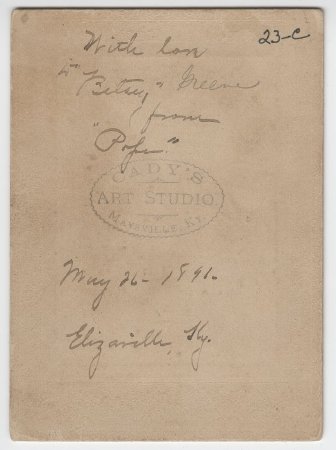 23-C
With love
"Betsy" Greene
from
"Pope."
CADY'S
ART STUDIO
MAYSVILLE, KY.
May 26 - 1891.
Elizaville, Ky.